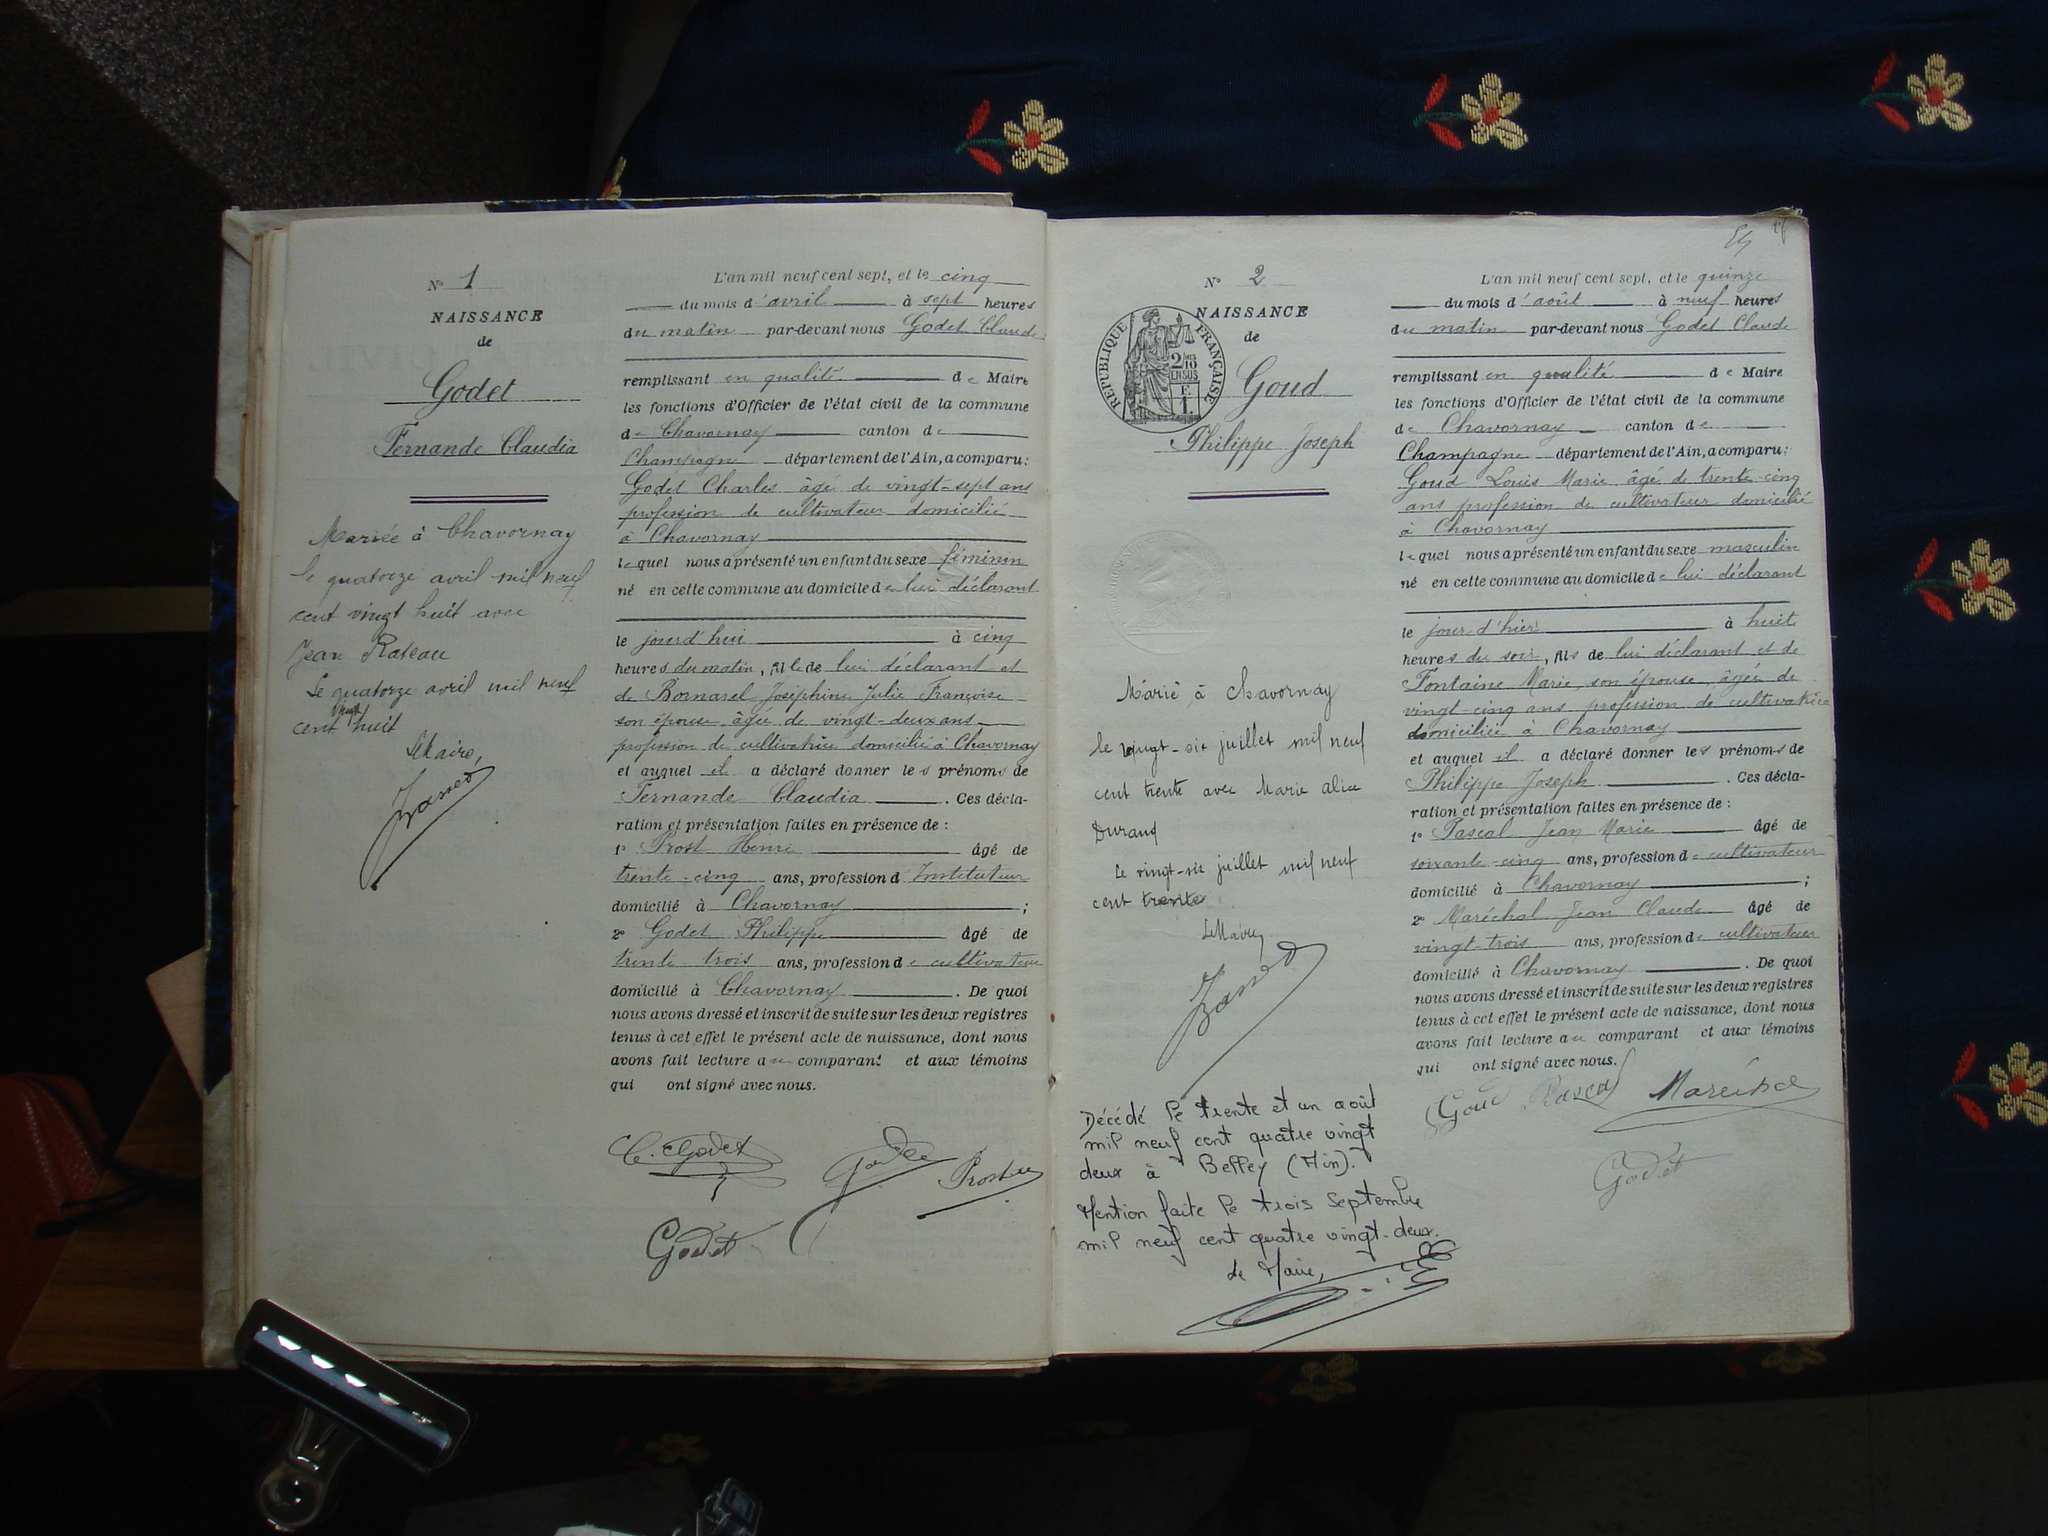 N° 1
NAISSANCE
de
Godet
Fernande Claudia
Mariée à Chavornay
le quatorze avril mil neuf
cent vingt huit avec
Jean Rateau
Le quatorze avril mil neuf
cent vingt huit
Le Maire,
L'an mil neuf cent sept, et le cinq
du mois d'avril à sept heures
du matin par-devant nous Godet Claude
remplissant en qualité de Maire
les fonctions d'Officier de l'état civil de la commune
de Chavornay canton de
Champagne département de l'Ain, a comparu:
Godet Charles âgé de vingt-sept ans
profession de cultivateur domicilié
à Chavornay
lequel nous a présenté un enfant du sexe féminin
né en cette commune au domicile de lui déclarant
le jourd'hui à cinq
heures du matin, fille de lui déclarant et
de Bornarel Joséphine Julie Françoise
son épouse âgée de vingt-deux ans
profession de cultivatrice domicilié à Chavornay
et auquel il a déclaré donner les prénoms de
Fernande Claudia. Ces décla-
ration et présentation faites en présence de :
1° Prost Henri âgé de
trente-cinq ans, profession d'Instituteur
domicilié à Chavornay ;
2° Godet Philippe âgé de
trente trois ans, profession de cultivateur
domicilié à Chavornay. De quoi
nous avons dressé et inscrit de suite sur les deux registres
tenus à cet effet le présent acte de naissance, dont nous
avons fait lecture au comparant et aux témoins
qui ont signé avec nous.
C. Godet Godet Prost
Godet
N° 2
NAISSANCE
de
RÉPUBLIQUE FRANÇAISE
2/10 EN SUS
F. 1.
Goud
Philippe Joseph
Marié à Chavornay
le vingt-six juillet mil neuf
cent trente avec Marie Alice
Durand
Le vingt-six juillet mil neuf
cent trente
Le Maire,
Décédé le trente et un août
mil neuf cent quatre vingt
deux à Belley (Ain).
Mention faite le trois septembre
mil neuf cent quatre vingt-deux.
Le Maire,
L'an mil neuf cent sept, et le quinze
du mois d'août à neuf heures
du matin par-devant nous Godet Claude
remplissant en qualité de Maire
les fonctions d'Officier de l'état civil de la commune
de Chavornay canton de
Champagne département de l'Ain, a comparu:
Goud Louis Marie âgé de trente-cinq
ans profession de cultivateur domicilié
à Chavornay
lequel nous a présenté un enfant du sexe masculin
né en cette commune au domicile de lui déclarant
le jour d'hier à huit
heures du soir, fils de lui déclarant et de
Fontaine Marie, son épouse, âgée de
vingt-cinq ans profession de cultivatrice
domiciliée à Chavornay
et auquel il a déclaré donner les prénoms de
Philippe Joseph. Ces décla-
ration et présentation faites en présence de :
1° Pascal Jean Marie âgé de
soixante-cinq ans, profession de cultivateur
domicilié à Chavornay ;
2° Maréchal Jean Claude âgé de
vingt-trois ans, profession de cultivateur
domicilié à Chavornay. De quoi
nous avons dressé et inscrit de suite sur les deux registres
tenus à cet effet le présent acte de naissance, dont nous
avons fait lecture au comparant et aux témoins
qui ont signé avec nous.
Goud Pascal Maréchal
Godet